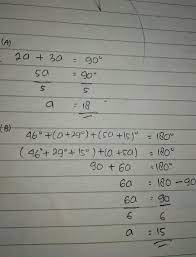 (A)
2a + 3a = 90°
5a = 90°
5 5
a = 18
(B)
46° + (a + 29°) + (5a + 15)° = 180°
(46° + 29° + 15°) + (a + 5a) = 180°
90 + 6a = 180°
6a = 180 - 90
6a = 90
6 6
a = 15